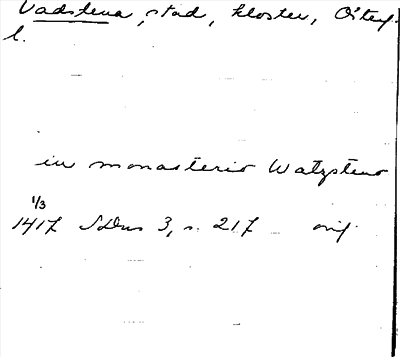 Vadstena, stad, kloster, Östergl.
l.
in monasterio Watzstena
1/3
1417 SDns 3, s. 217 orig.